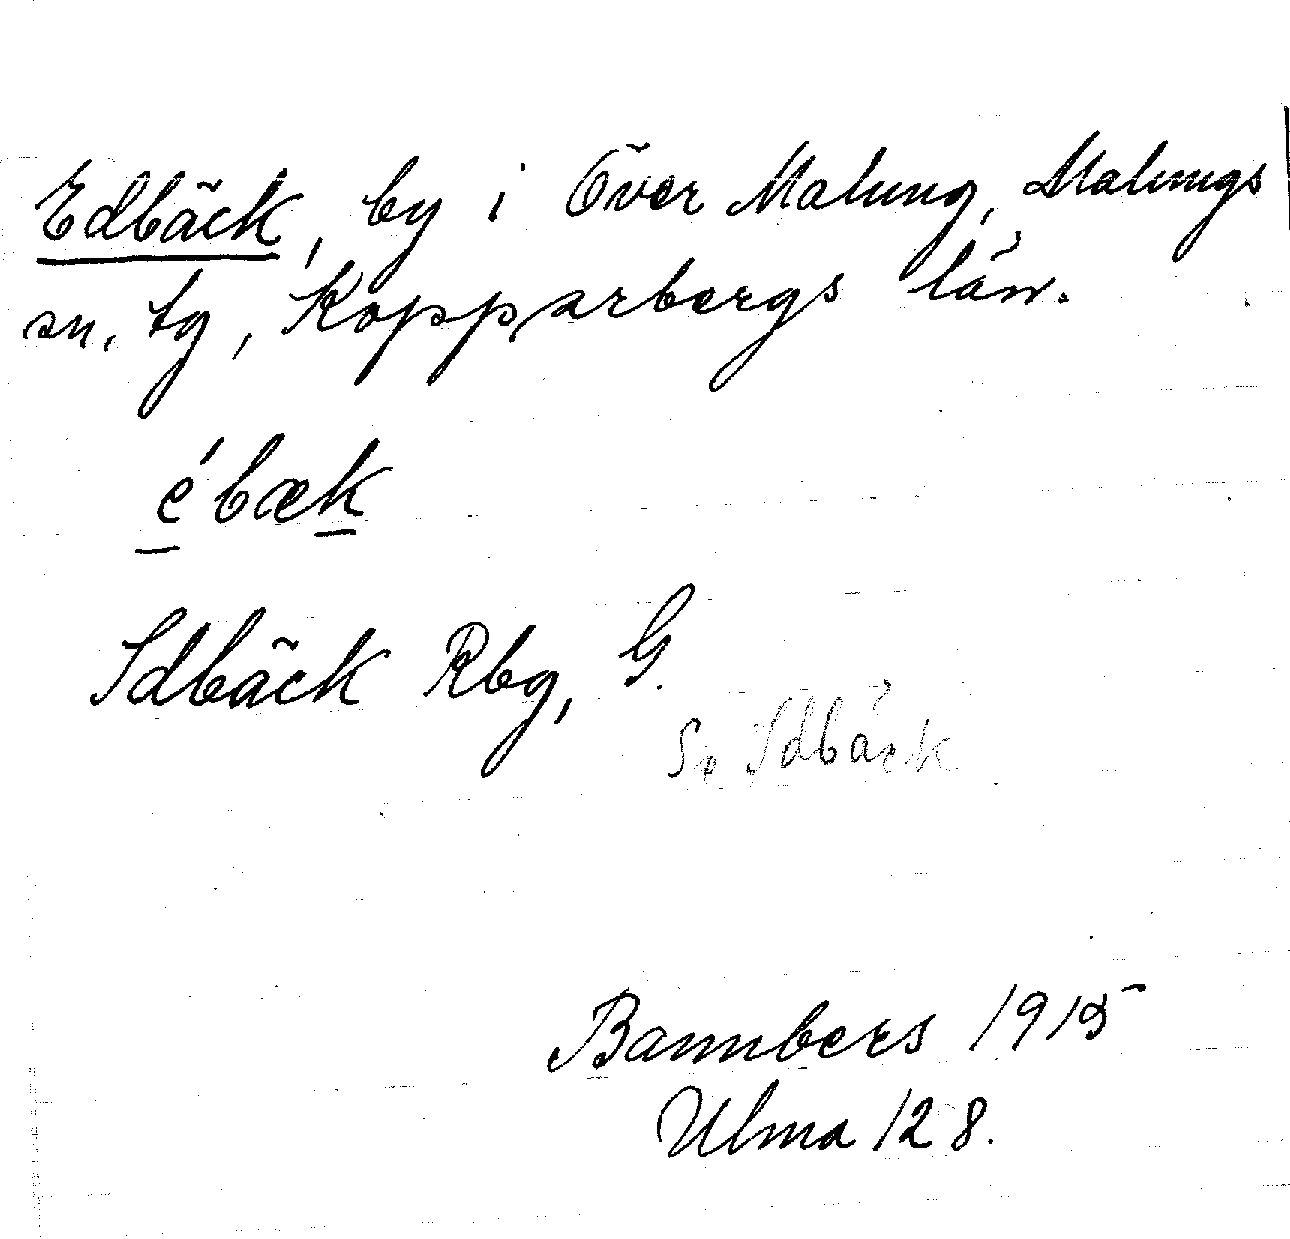 Edbäck, by i Över Malung, Malungs
sn. tg, Kopparbergs län.
ébæk
Idbäck Rbg, G.
Se Idbäck
Bannbers 1915
Ulma 128.